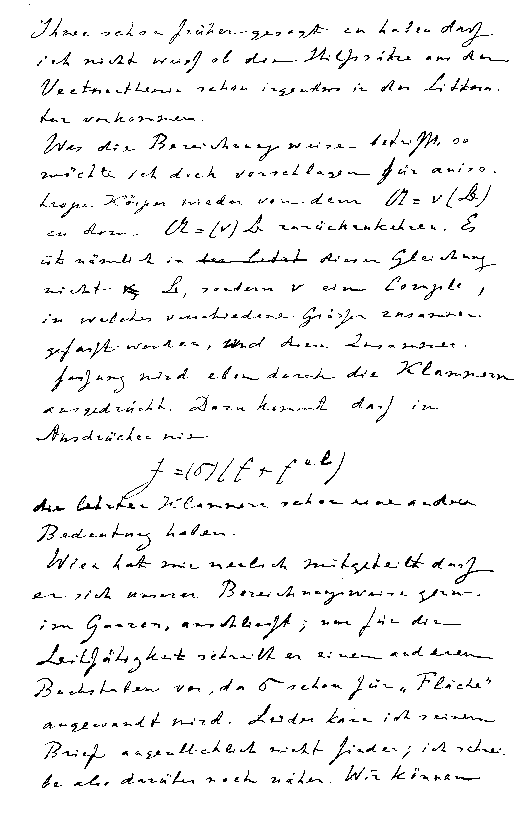 Ihnen schon früher gesagt zu haben dass
ich nicht weiss ob die Hilfssätze aus der
Vectortheorie schon irgendwo in der Littera-
tur vorkommen.
Was die Bezeichnungsweise betrifft, so
möchte ich doch vorschlagen für aniso-
trope Körper wieder von dem 𝔄 = ν(𝔅)
zu dem 𝔄 = (ν) 𝔅 zurückzukehren. Es
ist nämlich in dieser Gleichung
nicht 𝔅, sondern ν ein Complex,
in welches verschiedene Grössen zusammen-
gefasst werden, und diese Zusammen-
fassung wird eben durch die Klammern
ausgedrückt. Dazu kommt dass in
Ausdrücken wie
J = (σ)(f + f^{e.l.})
die letzten Klammern schon eine andere
Bedeutung haben.
Wien hat mir neulich mitgeteilt dass
er sich unserer Bezeichnungsweise gern
im Ganzen, anschliesst; nur für die
Leitfähigkeit schreibt er einen anderen
Buchstaben vor, da σ schon für „Fläche"
angewandt wird. Leider kann ich seinen
Brief augenblicklich nicht finden; ich schrei-
be also darüber noch näher. Wir können